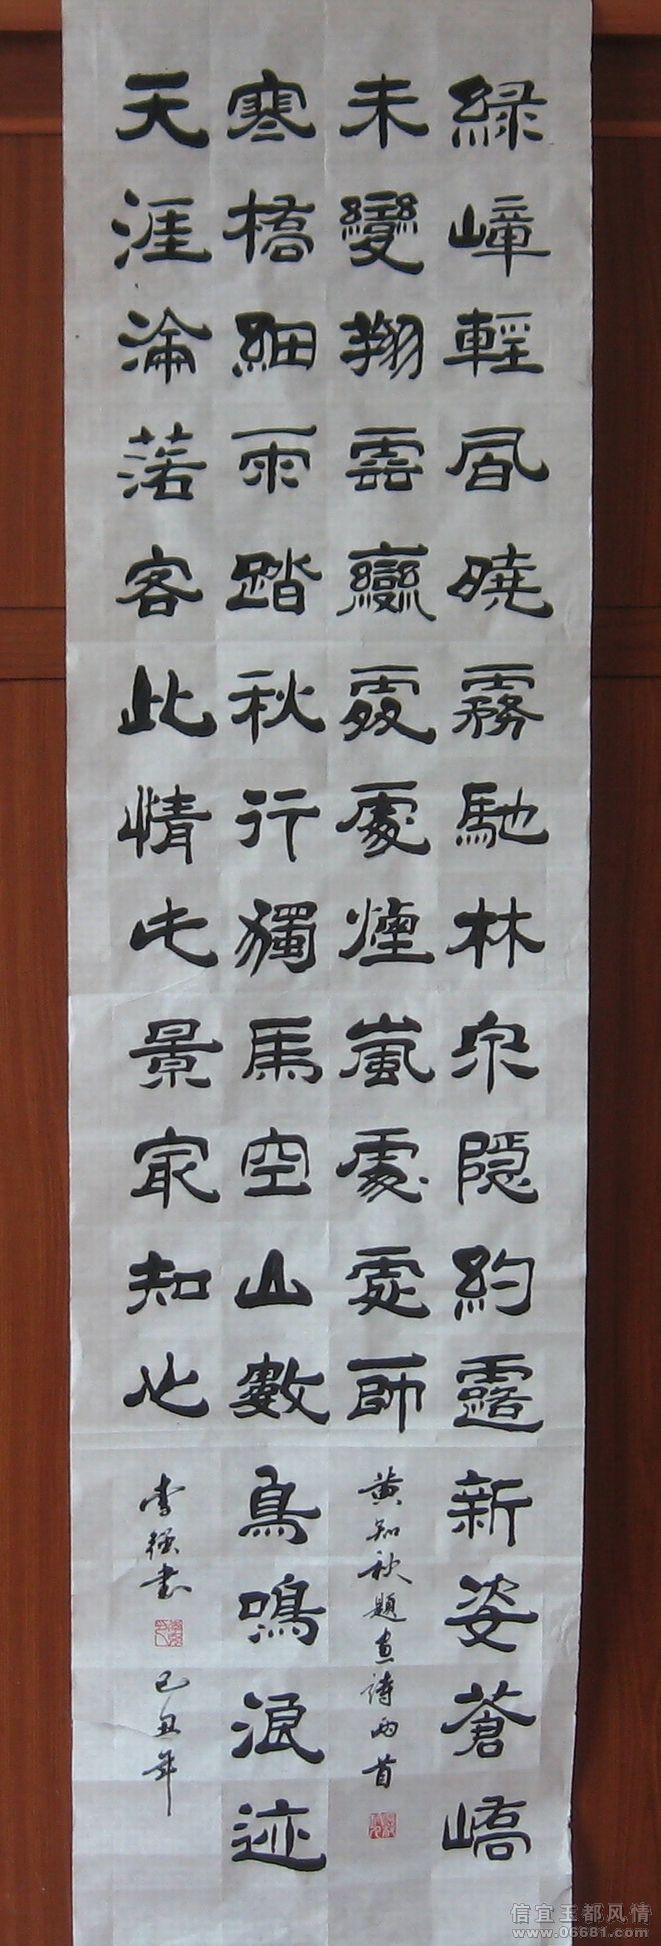 綠嶂輕風曉霧馳林泉隱約露新姿蒼嶠
未變翔雲變處處煙嵐處處師
黃知秋題畫詩兩首
寒橋細雨踏秋行獨馬空山數鳥鳴浪迹
天涯淪落客此情此景最知心
李强書 己丑年
信宜玉都风情
www.06681.com